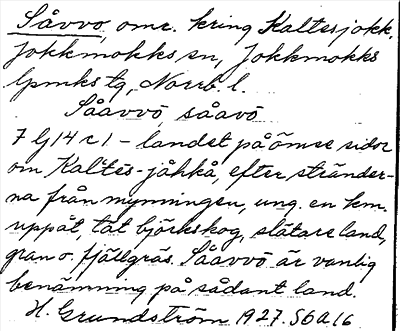 Såvvo, omr. kring Kaltesjokk,
Jokkmokks sn, Jokkmokks
lpmks tg, Norrb. l.
Såavvō, såavō
7 lj 14 c 1 – landet på ömse sidor
om Kaltēs-jåhkå, efter stränder-
na från mynningen, ung. en km.
uppåt, tät björkskog, slätare land,
gran o. fjällgräs. Såavvō är vanlig
benämning på sådant land.
H. Grundström 1927. S6a16